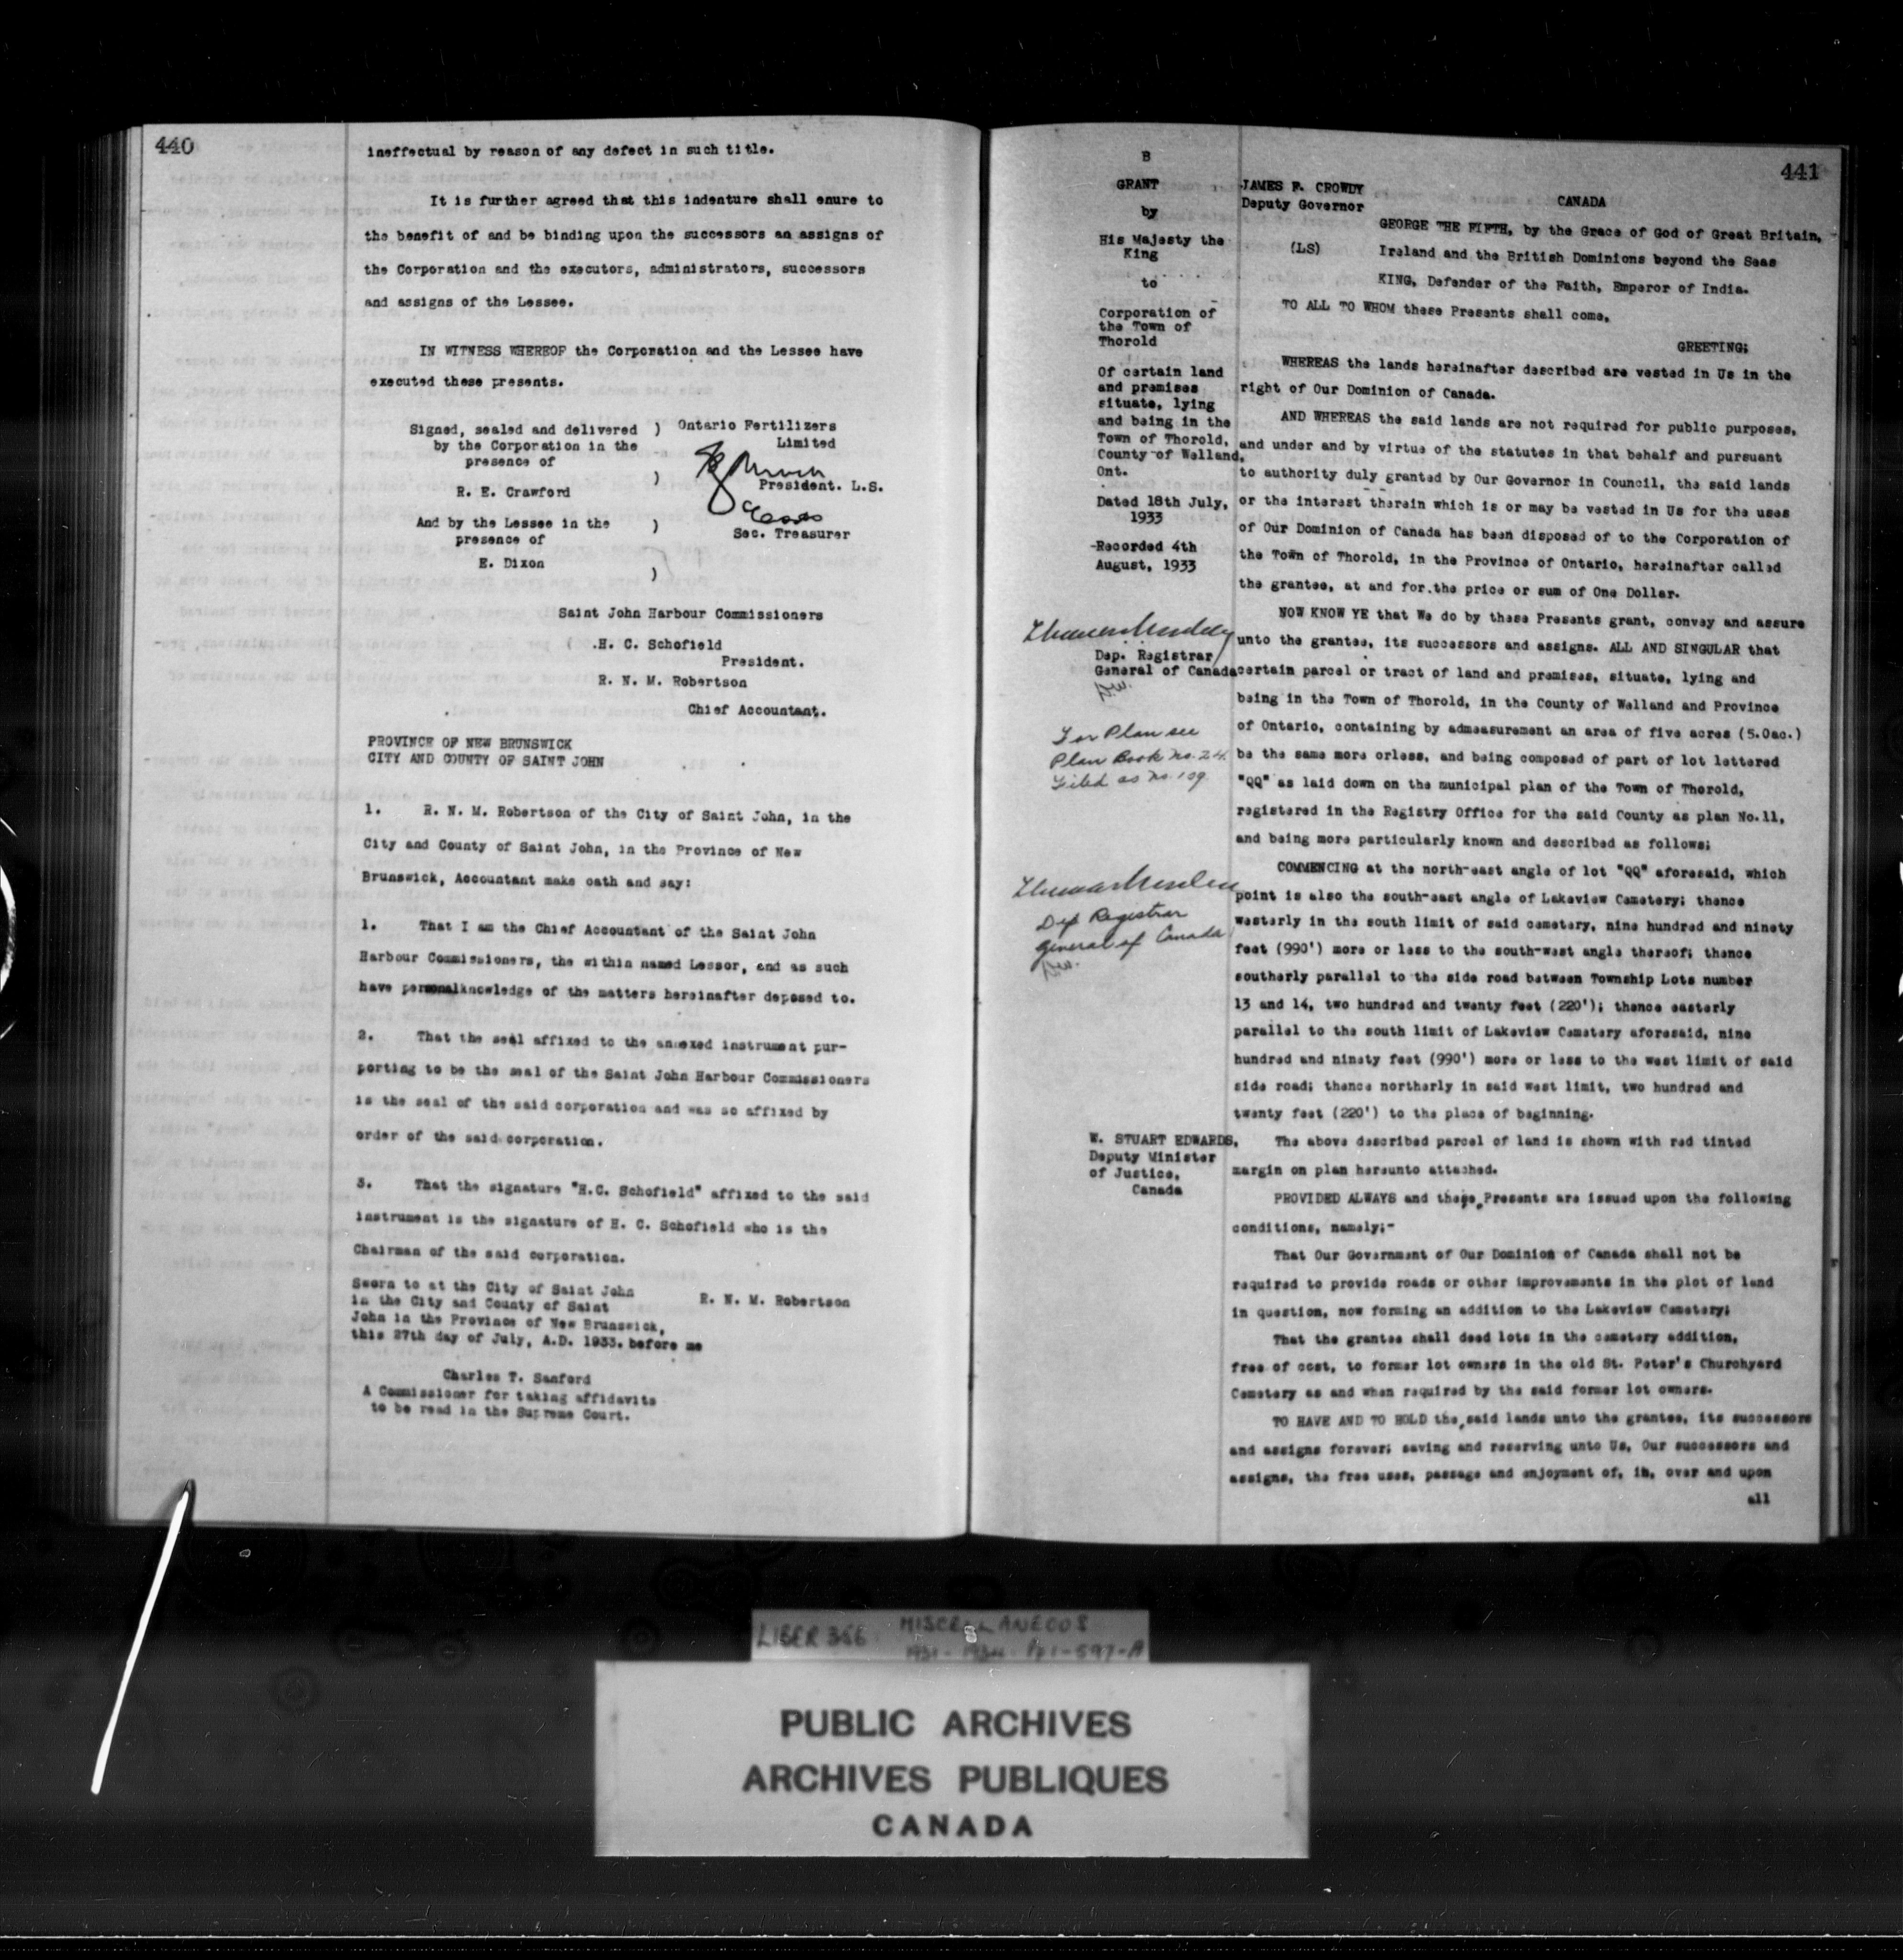 440
ineffectual by reason of any defect in such title.
It is further agreed that this indenture shall enure to
the benefit of and be binding upon the successors an assigns of
the Corporation and the executors, administrators, successors
and assigns of the Lessee.
IN WITNESS WHEREOF the Corporation and the Lessee have
executed these presents.
Signed, sealed and delivered ) Ontario Fertilizers
by the Corporation in the Limited
presence of
) President. L.S.
R. E. Crawford
And by the Lessee in the )
presence of Sec. Treasurer
E. Dixon
)
Saint John Harbour Commissioners
H. C. Schofield
President.
R. N. M. Robertson
Chief Accountant.
PROVINCE OF NEW BRUNSWICK
CITY AND COUNTY OF SAINT JOHN
1. R. N. M. Robertson of the City of Saint John, in the
City and County of Saint John, in the Province of New
Brunswick, Accountant make oath and say:
1. That I am the Chief Accountant of the Saint John
Harbour Commissioners, the within named Lessor, and as such
have personalknowledge of the matters hereinafter deposed to.
2. That the seal affixed to the annexed instrument pur-
porting to be the seal of the Saint John Harbour Commissioners
is the seal of the said corporation and was so affixed by
order of the said corporation.
3. That the signature "H.C. Schofield" affixed to the said
instrument is the signature of H. C. Schofield who is the
Chairman of the said corporation.
Sworn to at the City of Saint John
in the City and County of Saint
John in the Province of New Brunswick,
this 27th day of July, A.D. 1933. before me
R. N. M. Robertson
Charles T. Sanford
A Commissioner for taking affidavits
to be read in the Supreme Court.
441
B
GRANT
by
His Majesty the
King
to
Corporation of
the Town of
Thorold
Of certain land
and premises
situate, lying
and being in the
Town of Thorold,
County of Welland,
Ont.
Dated 18th July,
1933
-Recorded 4th
August, 1933
Dep. Registrar
General of Canada
For Plan see
Plan Book No. 24.
Filed as No. 109.
Dep Registrar
General of Canada
W. STUART EDWARDS,
Deputy Minister
of Justice,
Canada
JAMES F. CROWDY
Deputy Governor
(LS)
CANADA
GEORGE THE FIFTH, by the Grace of God of Great Britain,
Ireland and the British Dominions beyond the Seas
KING, Defender of the Faith, Emperor of India.
TO ALL TO WHOM these Presents shall come,
GREETING;
WHEREAS the lands hereinafter described are vested in Us in the
right of Our Dominion of Canada.
AND WHEREAS the said lands are not required for public purposes,
and under and by virtue of the statutes in that behalf and pursuant
to authority duly granted by Our Governor in Council, the said lands
or the interest therein which is or may be vested in Us for the uses
of Our Dominion of Canada has been disposed of to the Corporation of
the Town of Thorold, in the Province of Ontario, hereinafter called
the grantee, at and for the price or sum of One Dollar.
NOW KNOW YE that We do by these Presents grant, convey and assure
unto the grantee, its successors and assigns. ALL AND SINGULAR that
certain parcel or tract of land and premises, situate, lying and
being in the Town of Thorold, in the County of Welland and Province
of Ontario, containing by admeasurement an area of five acres (5.0ac.)
be the same more orless, and being composed of part of lot lettered
"QQ" as laid down on the municipal plan of the Town of Thorold,
registered in the Registry Office for the said County as plan No.11,
and being more particularly known and described as follows;
COMMENCING at the north-east angle of lot "QQ" aforesaid, which
point is also the south-east angle of Lakeview Cemetery; thence
westerly in the south limit of said cemetery, nine hundred and ninety
feet (990') more or less to the south-west angle thereof; thence
southerly parallel to the side road between Township Lots number
13 and 14, two hundred and twenty feet (220'); thence easterly
parallel to the south limit of Lakeview Cemetery aforesaid, nine
hundred and ninety feet (990') more or less to the west limit of said
side road; thence northerly in said west limit, two hundred and
twenty feet (220') to the place of beginning.
The above described parcel of land is shown with red tinted
margin on plan hereunto attached.
PROVIDED ALWAYS and these Presents are issued upon the following
conditions, namely;-
That Our Government of Our Dominion of Canada shall not be
required to provide roads or other improvements in the plot of land
in question, now forming an addition to the Lakeview Cemetery;
That the grantee shall deed lots in the cemetery addition,
free of cost, to former lot owners in the old St. Peter's Churchyard
Cemetery as and when required by the said former lot owners.
TO HAVE AND TO HOLD the said lands unto the grantee, its successors
and assigns forever; saving and reserving unto Us, Our successors and
assigns, the free uses, passage and enjoyment of, in, over and upon
all
LIBER 366 MISCELLANEOUS
1931-1934 Pp1-597-A
PUBLIC ARCHIVES
ARCHIVES PUBLIQUES
CANADA